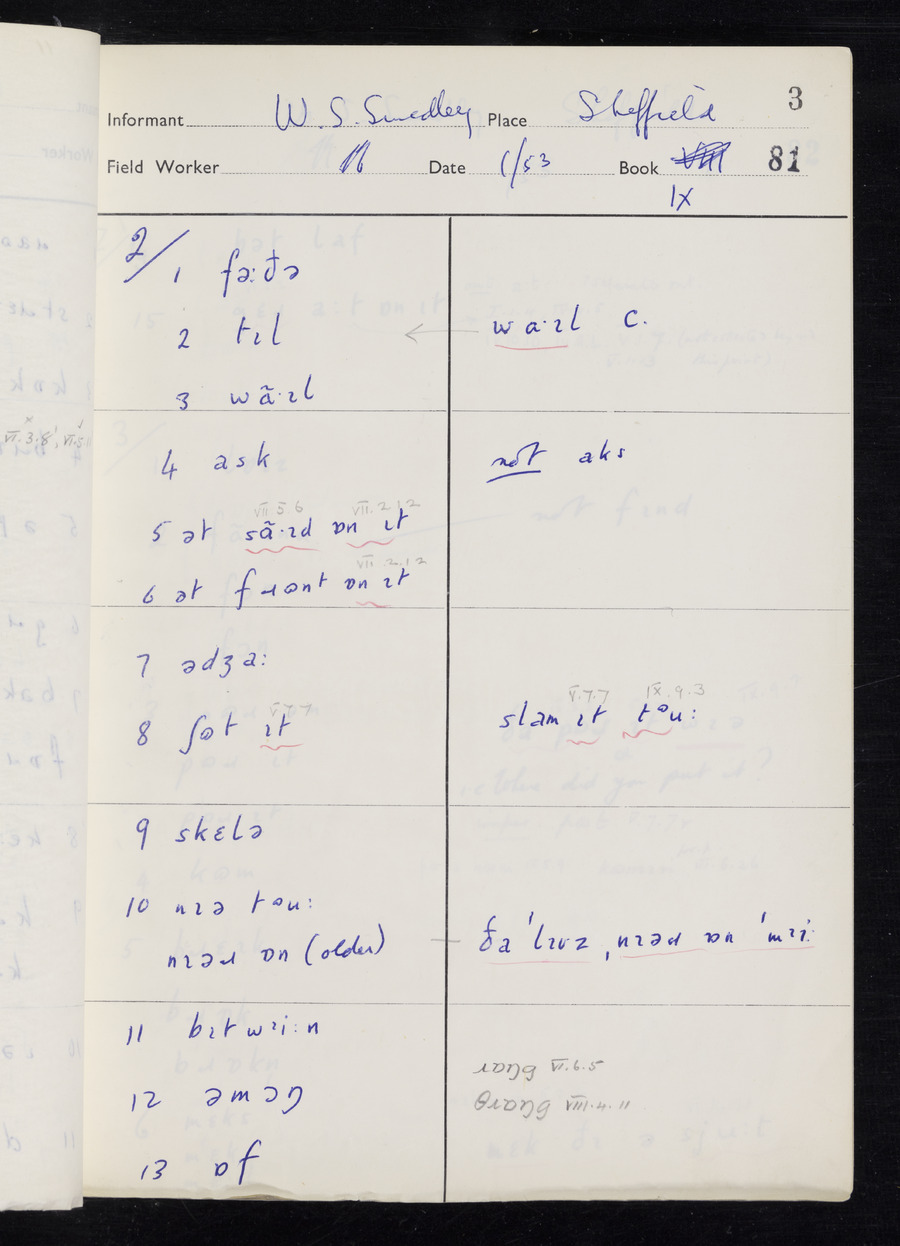 3
Informant W. S. Smedley Place Sheffield
Field Worker Date 1/53 Book VIII 81
IX
2/
1 fəːðə
2 tɪl waˑɪl C.
3 wãˑɪl
4 ask not aks
VII 5 6 VII.2.12
5 ət sãˑɪd ɒn ɪt
VII.2.12
6 ət fɹɵnt ɒn ɪt
7 ədʒaː
V.7.7 V.7.7 IX.9.3
8 ʃɵt ɪt slam ɪt tᵊuː
9 skɛlə
10 nɪə tᵊuː
nɪəɹ ɒn (older) ða ˈlɪvz ˌnɪəɹ ɒn ˈmᵊiː
11 bɪtwᵊiːn
ɹɒŋg VI.6.5
12 əmɔŋ
θɹɒŋg VIII.4.11
13 ɒf